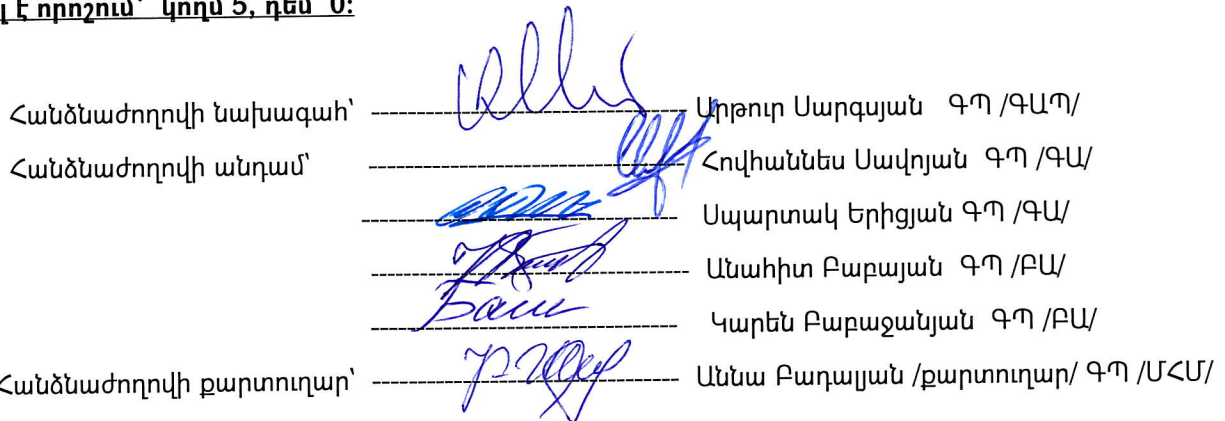 լ է որոշում՝ կողմ 5, դեմ 0:
Հանձնաժողովի նախագահ՝ Արթուր Սարգսյան ԳՊ /ԳԱՊ/
Հանձնաժողովի անդամ՝ Հովհաննես Սավոյան ԳՊ /ԳԱ/
Սպարտակ Երիցյան ԳՊ /ԳԱ/
Անահիտ Բաբայան ԳՊ /ԲԱ/
Կարեն Բաբաջանյան ԳՊ /ԲԱ/
Հանձնաժողովի քարտուղար՝ Աննա Բադալյան /քարտուղար/ ԳՊ /ՄՀՄ/